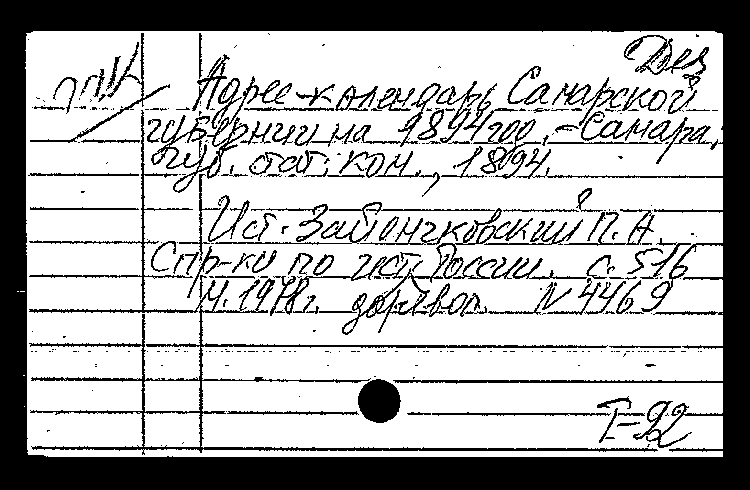 Дез
Адрес-календарь Самарской
губернии на 1894 год. - Самара;
Губ. стат. ком., 1894.
Ист. Зайончковский П. А.
Спр-ки по ист. России. с. 516
М. 1978г. дорævol. N 4469
I-92